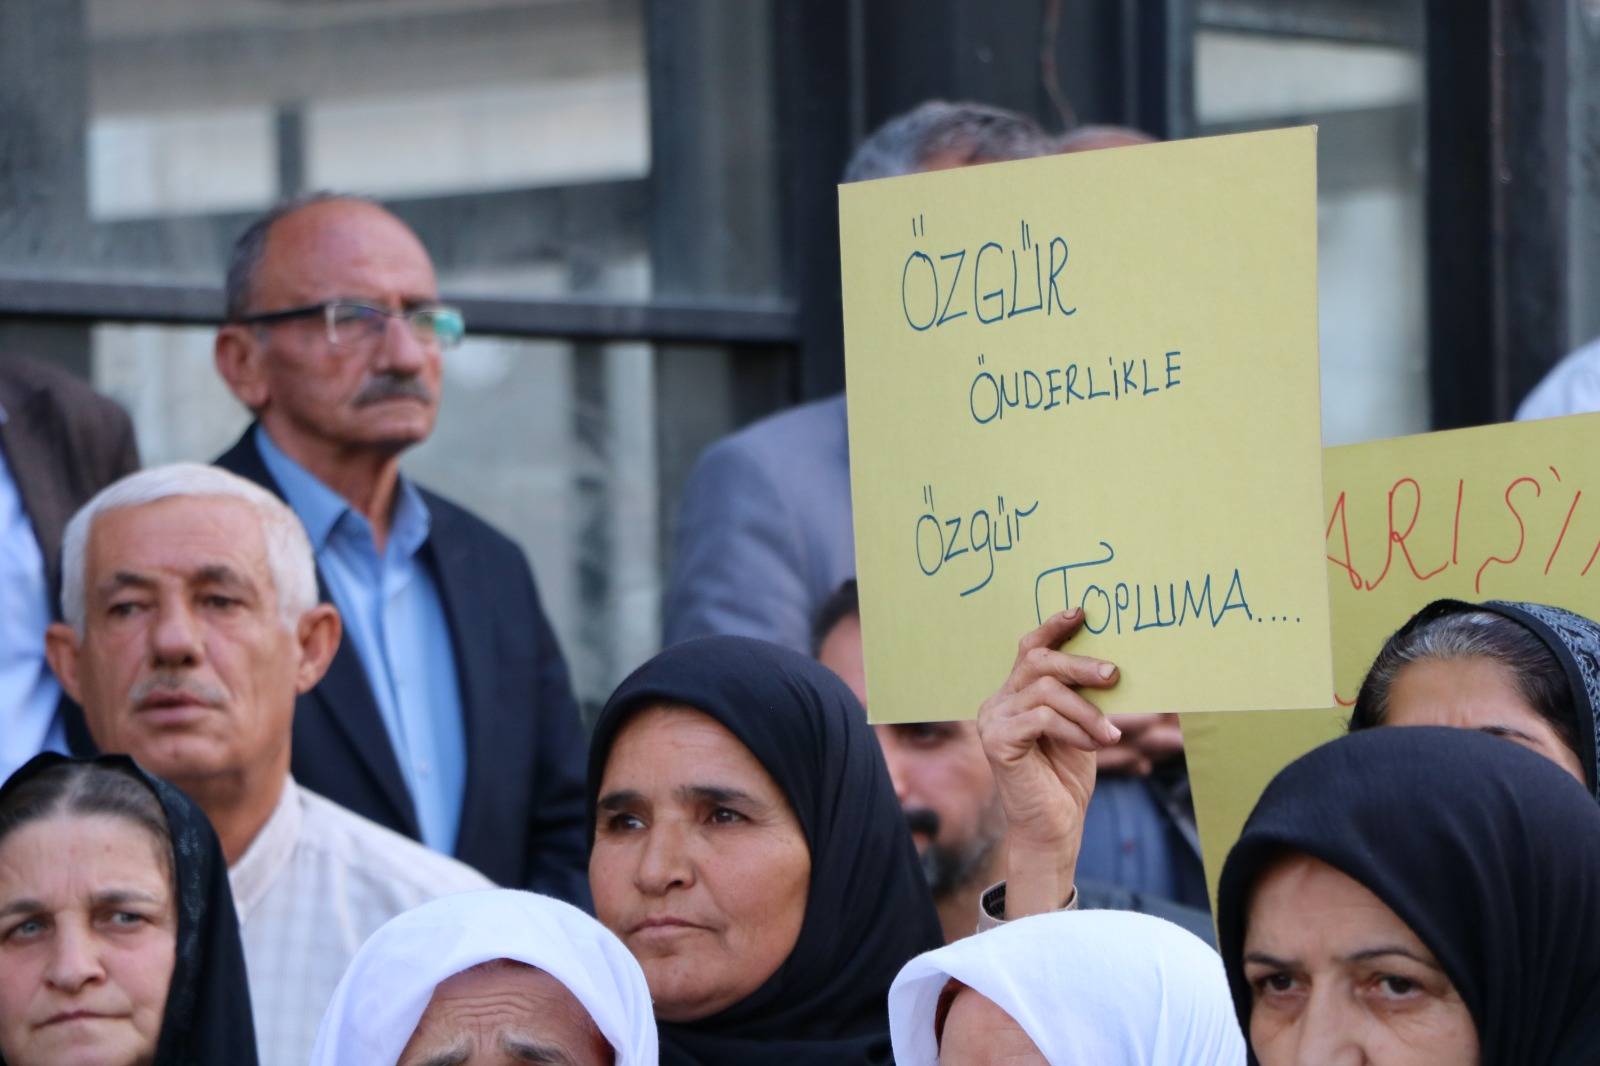 ÖZGÜR
ÖNDERLİKLE
Özgür
TOPLUMA....